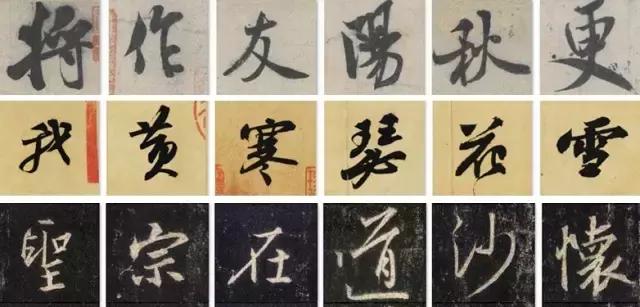 将作友陽秋更
我黄寒瑟花雪
聖宗在道沙懷